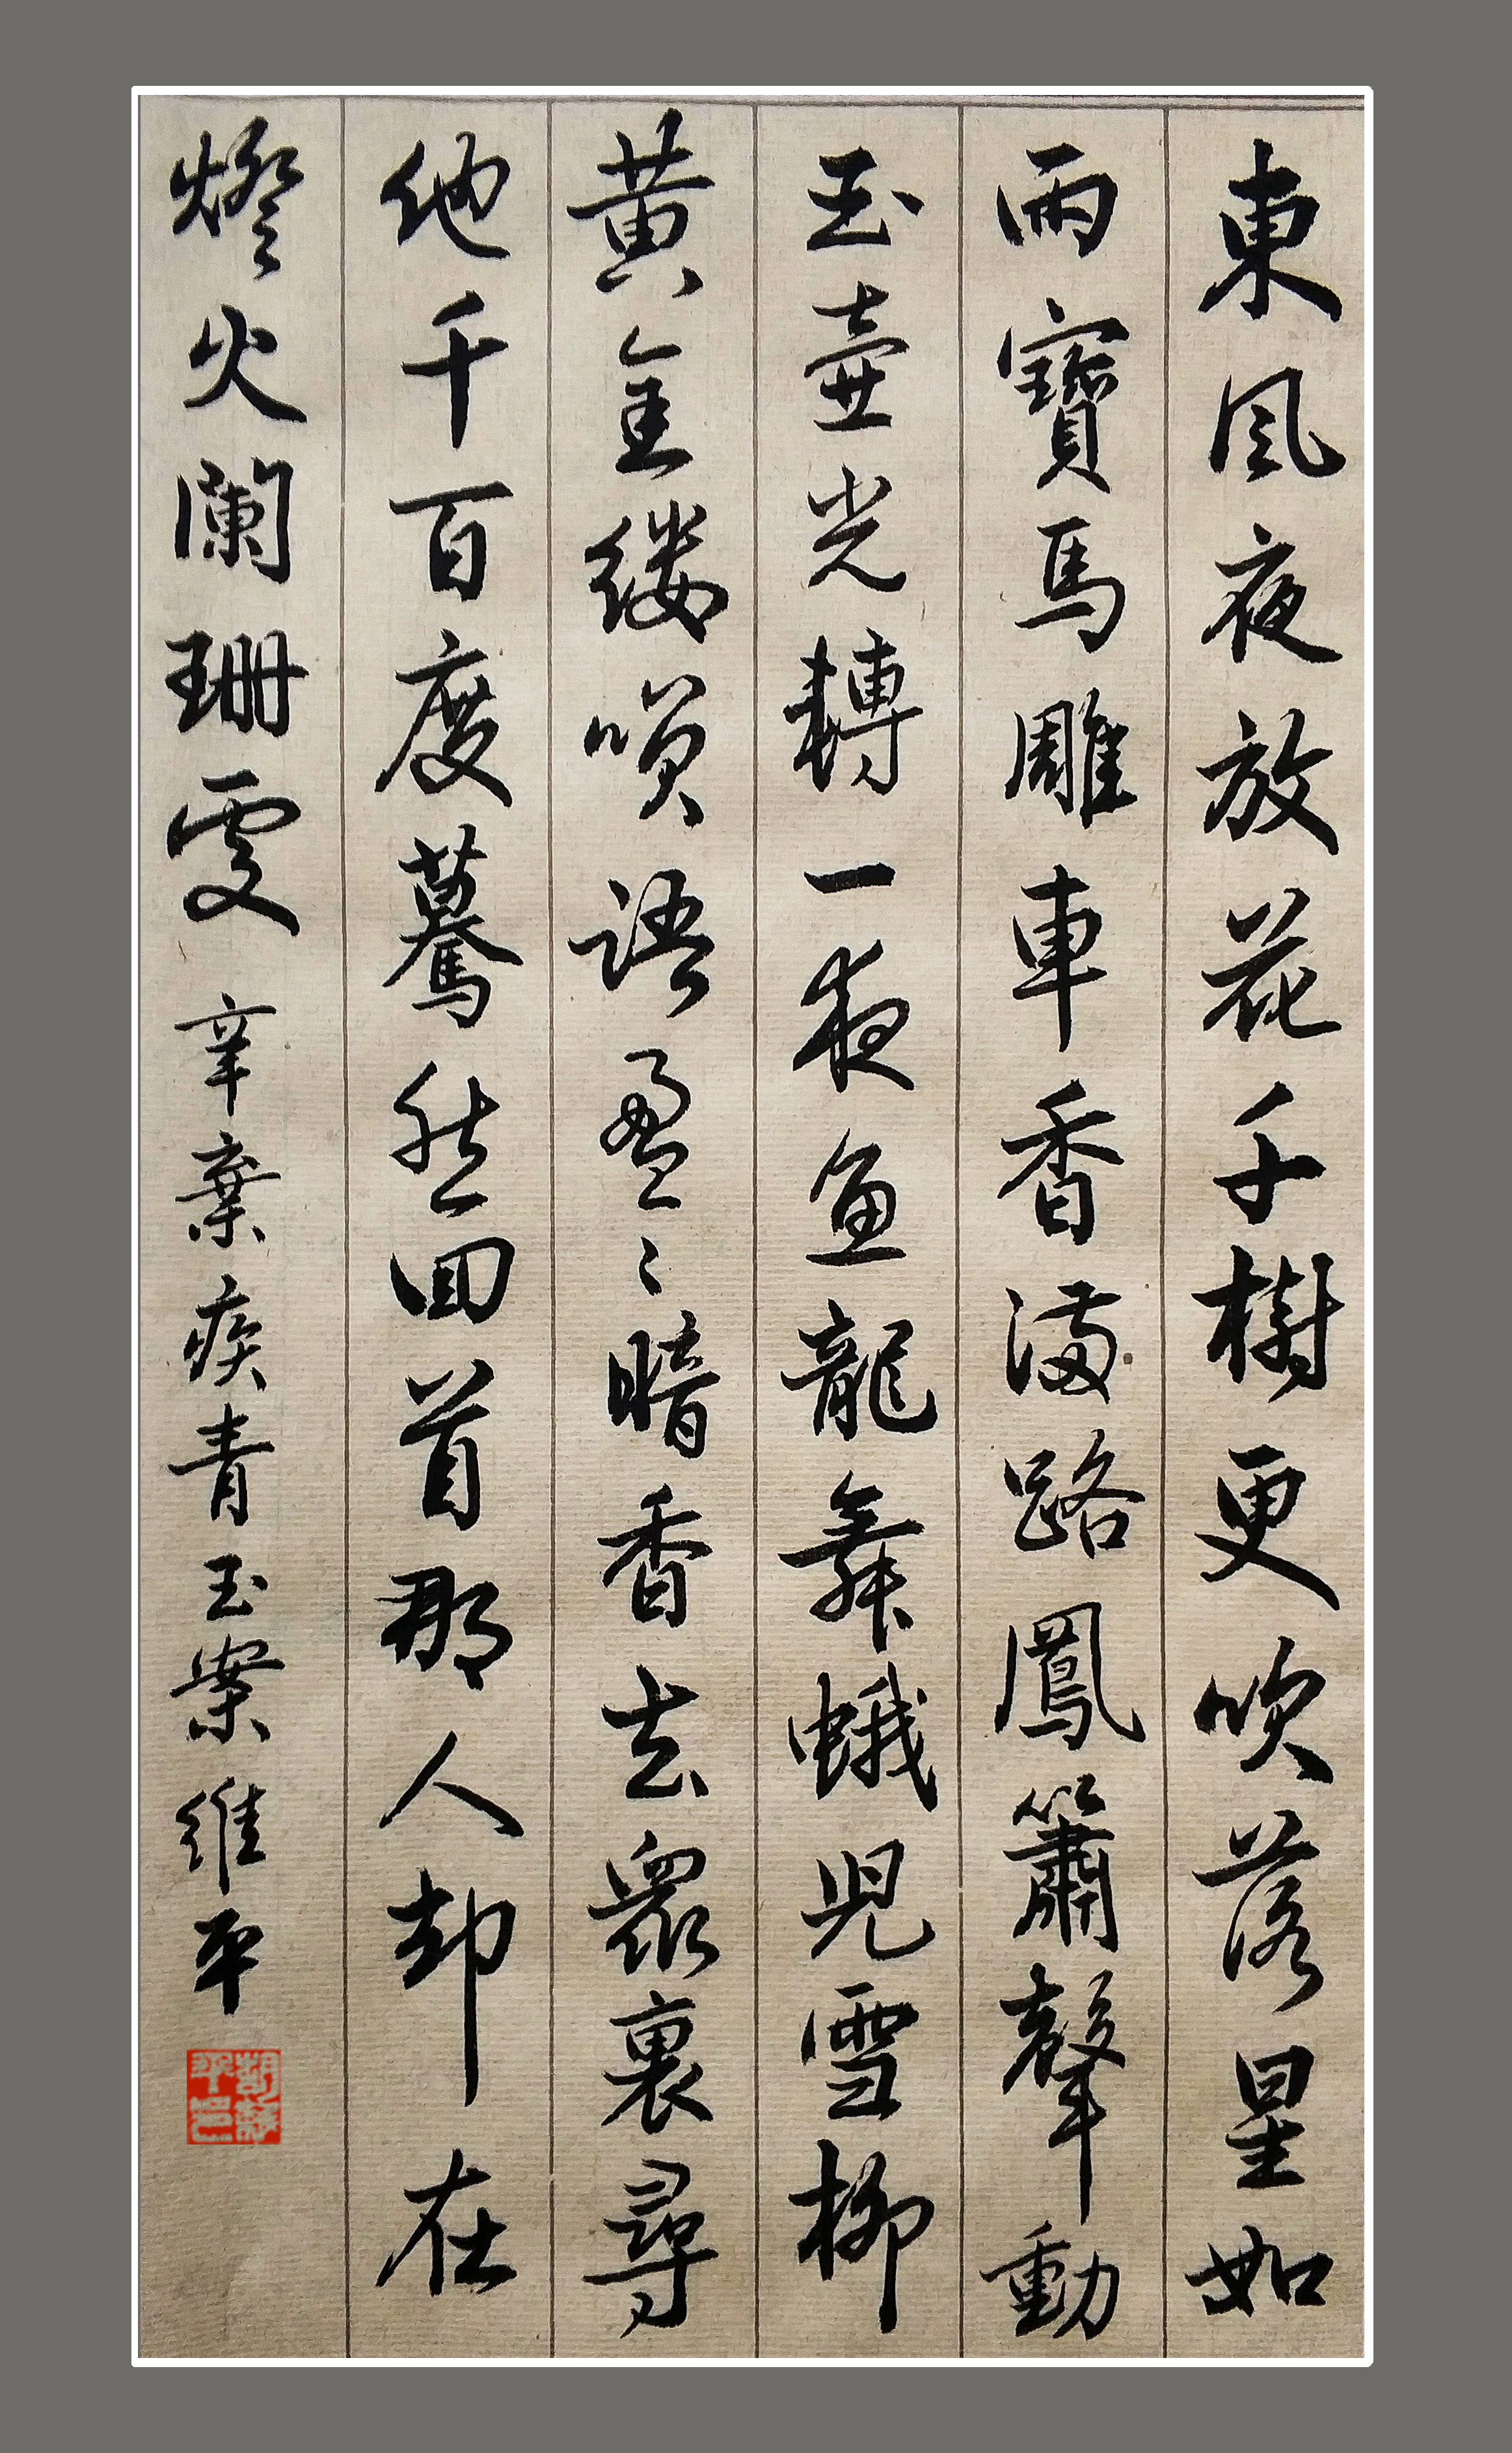 東風夜放花千樹更吹落星如
雨寶馬雕車香滿路鳳簫聲動
玉壺光轉一夜魚龍舞蛾兒雪柳
黃金縷笑語盈〻暗香去眾裏尋
他千百度驀然回首那人却在
燈火闌珊處 辛棄疾青玉案 維平